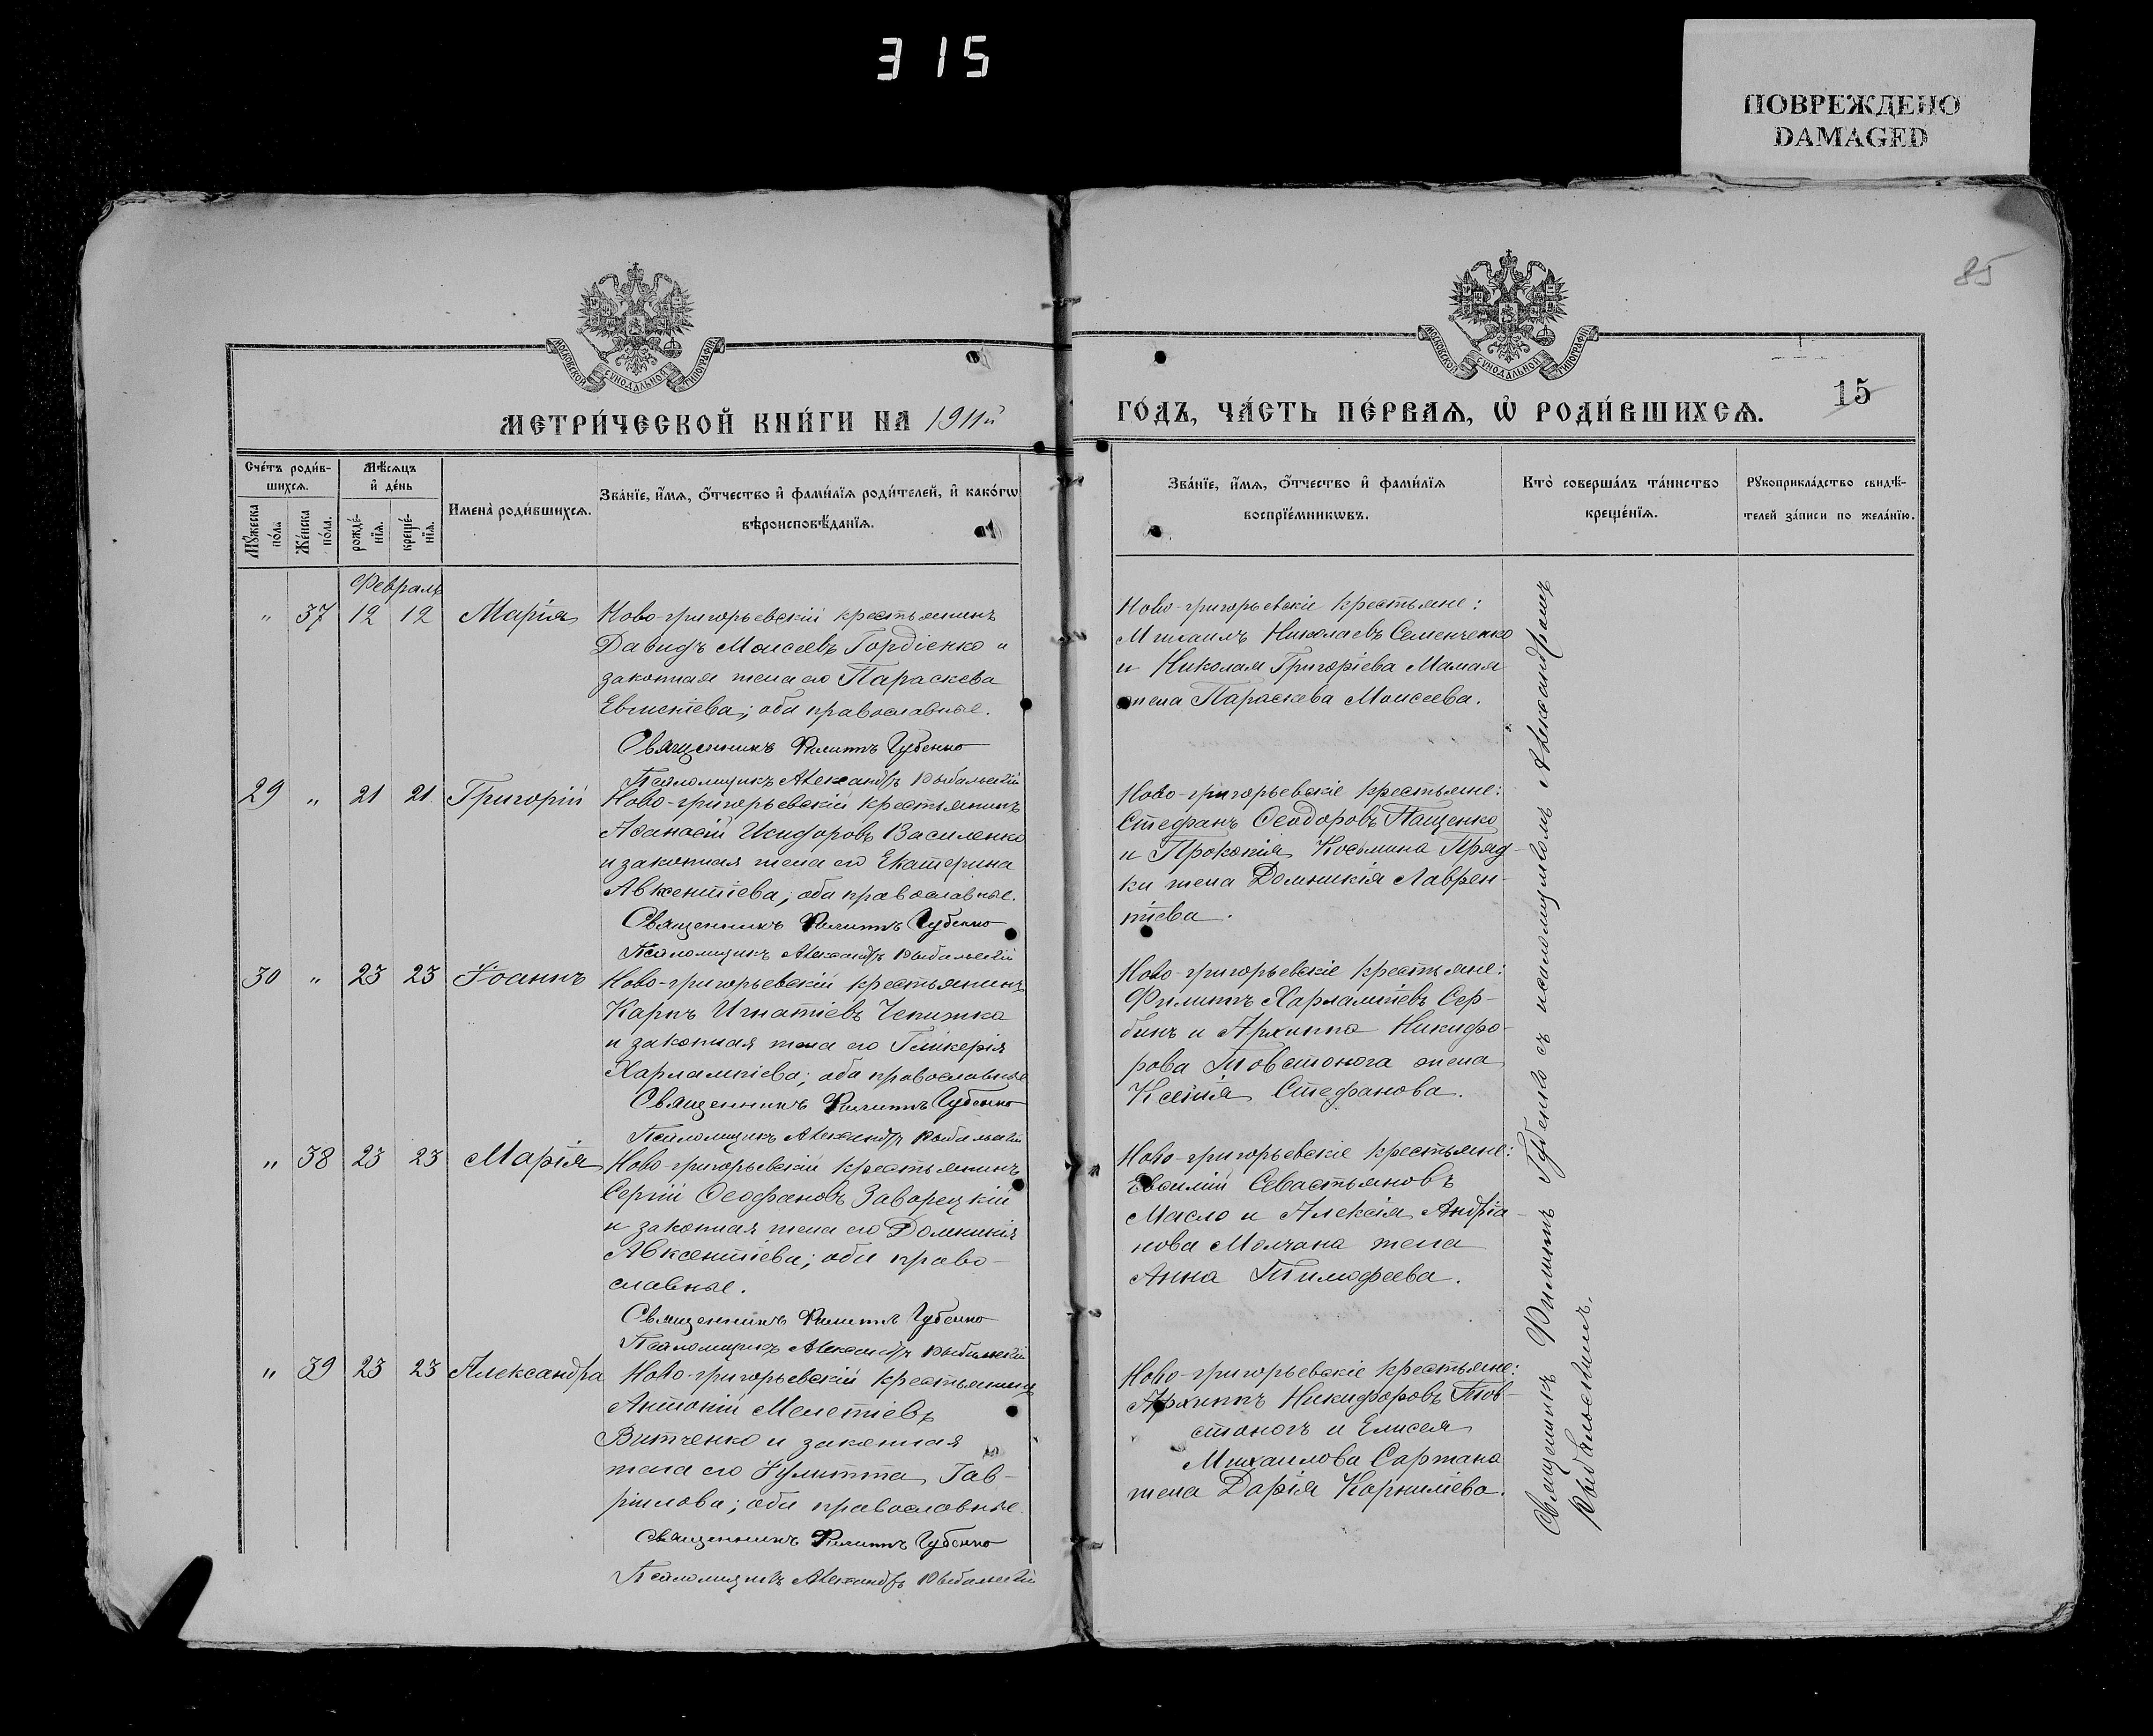 315
ПОВРЕЖДЕНО
DAMAGED
85
МОСКОВСКОЙ СѴНОДАЛЬНОЙ ТИПОГРАФІИ
МОСКОВСКОЙ СѴНОДАЛЬНОЙ ТИПОГРАФІИ
МЕТРИ́ЧЕСКОЙ КНИ́ГИ НА 1911й
ГО́ДЪ, ЧА́СТЬ ПЕ́РВАѦ, Ѡ҆ РОДИ́ВШИХСѦ.
15
Сче́тъ роди́в-
шихсѧ.
Мꙋ́жеска по́ла
Же́нска по́ла.
Мѣ́сѧцъ
и҆ де́нь
рожде́-
нїѧ.
креще́-
нїѧ.
И҆мена̀ роди́вшихсѧ.
Зва́нїе, и҆́мѧ, ѻ҆́тчество и҆ фами́лїѧ роди́телей, и҆ како́гѡ
вѣроисповѣ́данїѧ.
Зва́нїе, и҆́мѧ, ѻ҆́тчество и҆ фами́лїѧ
воспрїе́мникѡвъ.
Кто̀ соверша́лъ та́инство
креще́нїѧ.
Рꙋкоприкла́дство свидѣ́-
телей за́писи по жела́нїю.
Февраль
" 37 12 12 Марія
Ново-григорьевскій крестьянинъ
Давидъ Моисеевъ Гордіенко и
законная жена его Параскева
Евменіева; оба православные.
Священникъ Филиппъ Губенко
Псаломщикъ Александръ Рыбальскій
Ново-григорьевскіе крестьяне:
Михаилъ Николаевъ Семенченко
и Николая Григоріева Мамая
жена Параскева Моисеева.
29 " 21 21 Григорій
Ново-григорьевскій крестьянинъ
Аѳанасій Исидоровъ Василенко
и законная жена его Екатерина
Авксентіева; оба православные.
Священникъ Филиппъ Губенко
Псаломщикъ Александръ Рыбальскій
Ново-григорьевскіе крестьяне:
Стефанъ Ѳеодоровъ Пащенко
и Прокопія Косьмина Пряд-
ки жена Домникія Лаврен-
тіева.
30 " 23 23 Іоаннъ
Ново-григорьевскій крестьянинъ
Карпъ Игнатіевъ Чепижка
и законная жена его Гликерія
Харлампіева; оба православные
Священникъ Филиппъ Губенко
Псаломщикъ Александръ Рыбальскій
Ново-григорьевскіе крестьяне:
Филиппъ Харлампіевъ Сер-
бинъ и Архиппа Никифо-
рова Товстонога жена
Ксенія Стефанова.
" 38 23 23 Марія
Ново-григорьевскій крестьянинъ
Сергій Ѳеофановъ Заворецкій
и законная жена его Домникія
Авксентіева; оба право-
славные.
Священникъ Филиппъ Губенко
Псаломщикъ Александръ Рыбальскій
Ново-григорьевскіе крестьяне:
Севастьяновъ
Масло и Алексія Андріа-
нова Молчана жена
Анна Тимофеева.
" 39 23 23 Александра
Ново-григорьевскій крестьянинъ
Антоній Мелетіевъ
Витченко и законная
жена его Іулитта Гав-
ріилова; оба православные
Священникъ Филиппъ Губенко
Псаломщикъ Александръ Рыбальскій
Ново-григорьевскіе крестьяне:
Архиппъ Никифоровъ Тов-
стоногъ и Елисея
Михаилова Сартана
жена Дарія Корниліева.
Священникъ Филиппъ Губенко съ псаломщикомъ Александромъ
Рыбальскимъ.